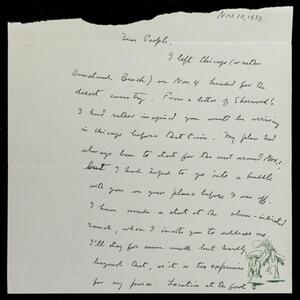 Nov 10, 1937
Dear People,
I left Chicago (or rather
Duneland Beach) on Nov 4 headed for the
desert country. From a letter of Sherwood's
I had rather imagined you would be arriving
in Chicago before that time. My plan had
always been to start for the west around Nov 1,
but I had hoped to go into a huddle
with you on your plans before I was off.
I have made a start at the above-indicated
ranch, where I invite you to address me.
I'll stay for some weeks but hardly
beyond that, as it is too expensive
for my purse. Location at the foot